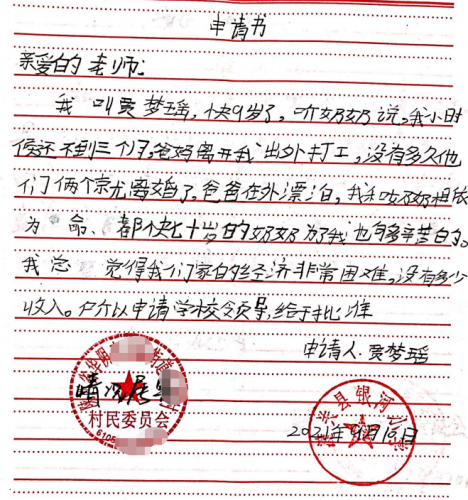 申请书
亲爱的老师:
我叫贾梦瑶,快9岁了。听奶奶说,我小时
候还不到三个月,爸妈离开我出外打工,没有多久他
们俩个就离婚了。爸爸在外漂泊,我和奶奶相依
为命、都快七十岁的奶奶为了我也够辛苦的。
我总觉得我们家的经济非常困难,没有多少
收入。所以申请学校领导,给于批准
申请人.贾梦瑶
情况属实
村民委员会
县银河
2021年9月19日